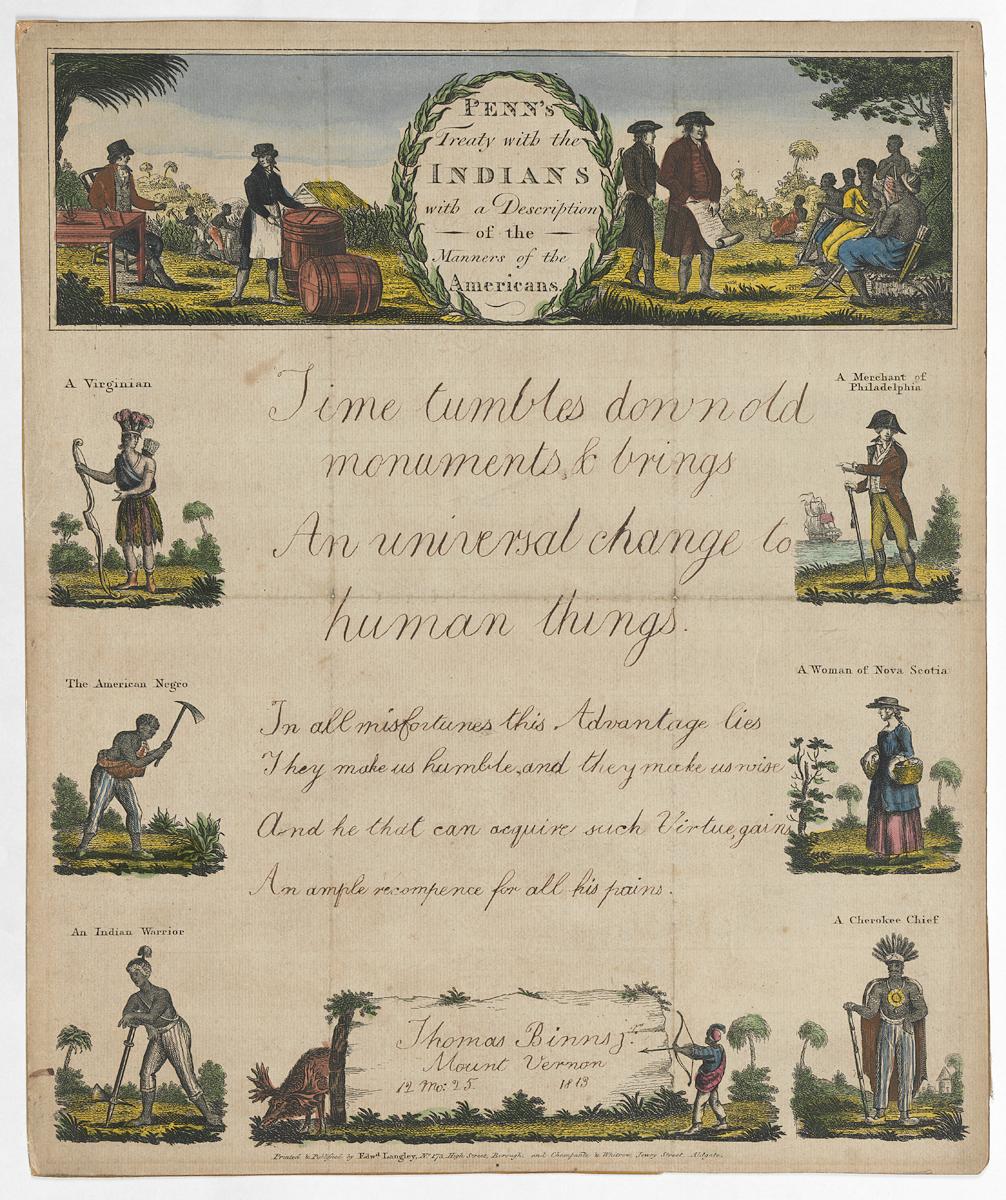 PENN's
Treaty with the
INDIANS
with a Description
of the
Manners of the
Americans.
A Virginian
A Merchant of
Philadelphia
Time tumbles down old
monuments, & brings
An universal change to
human things.
The American Negro
A Woman of Nova Scotia
In all misfortunes this Advantage lies
They make us humble, and they make us wise
And he that can acquire such Virtue, gain
An ample recompence for all his pains.
An Indian Warrior
A Cherokee Chief
Thomas Binns jr.
Mount Vernon
12 Mo: 25. 1813
Printed & Published by Edwd. Langley, No. 173, High Street, Borough. and Champante & Whitrow, Jewry Street, Aldgate.